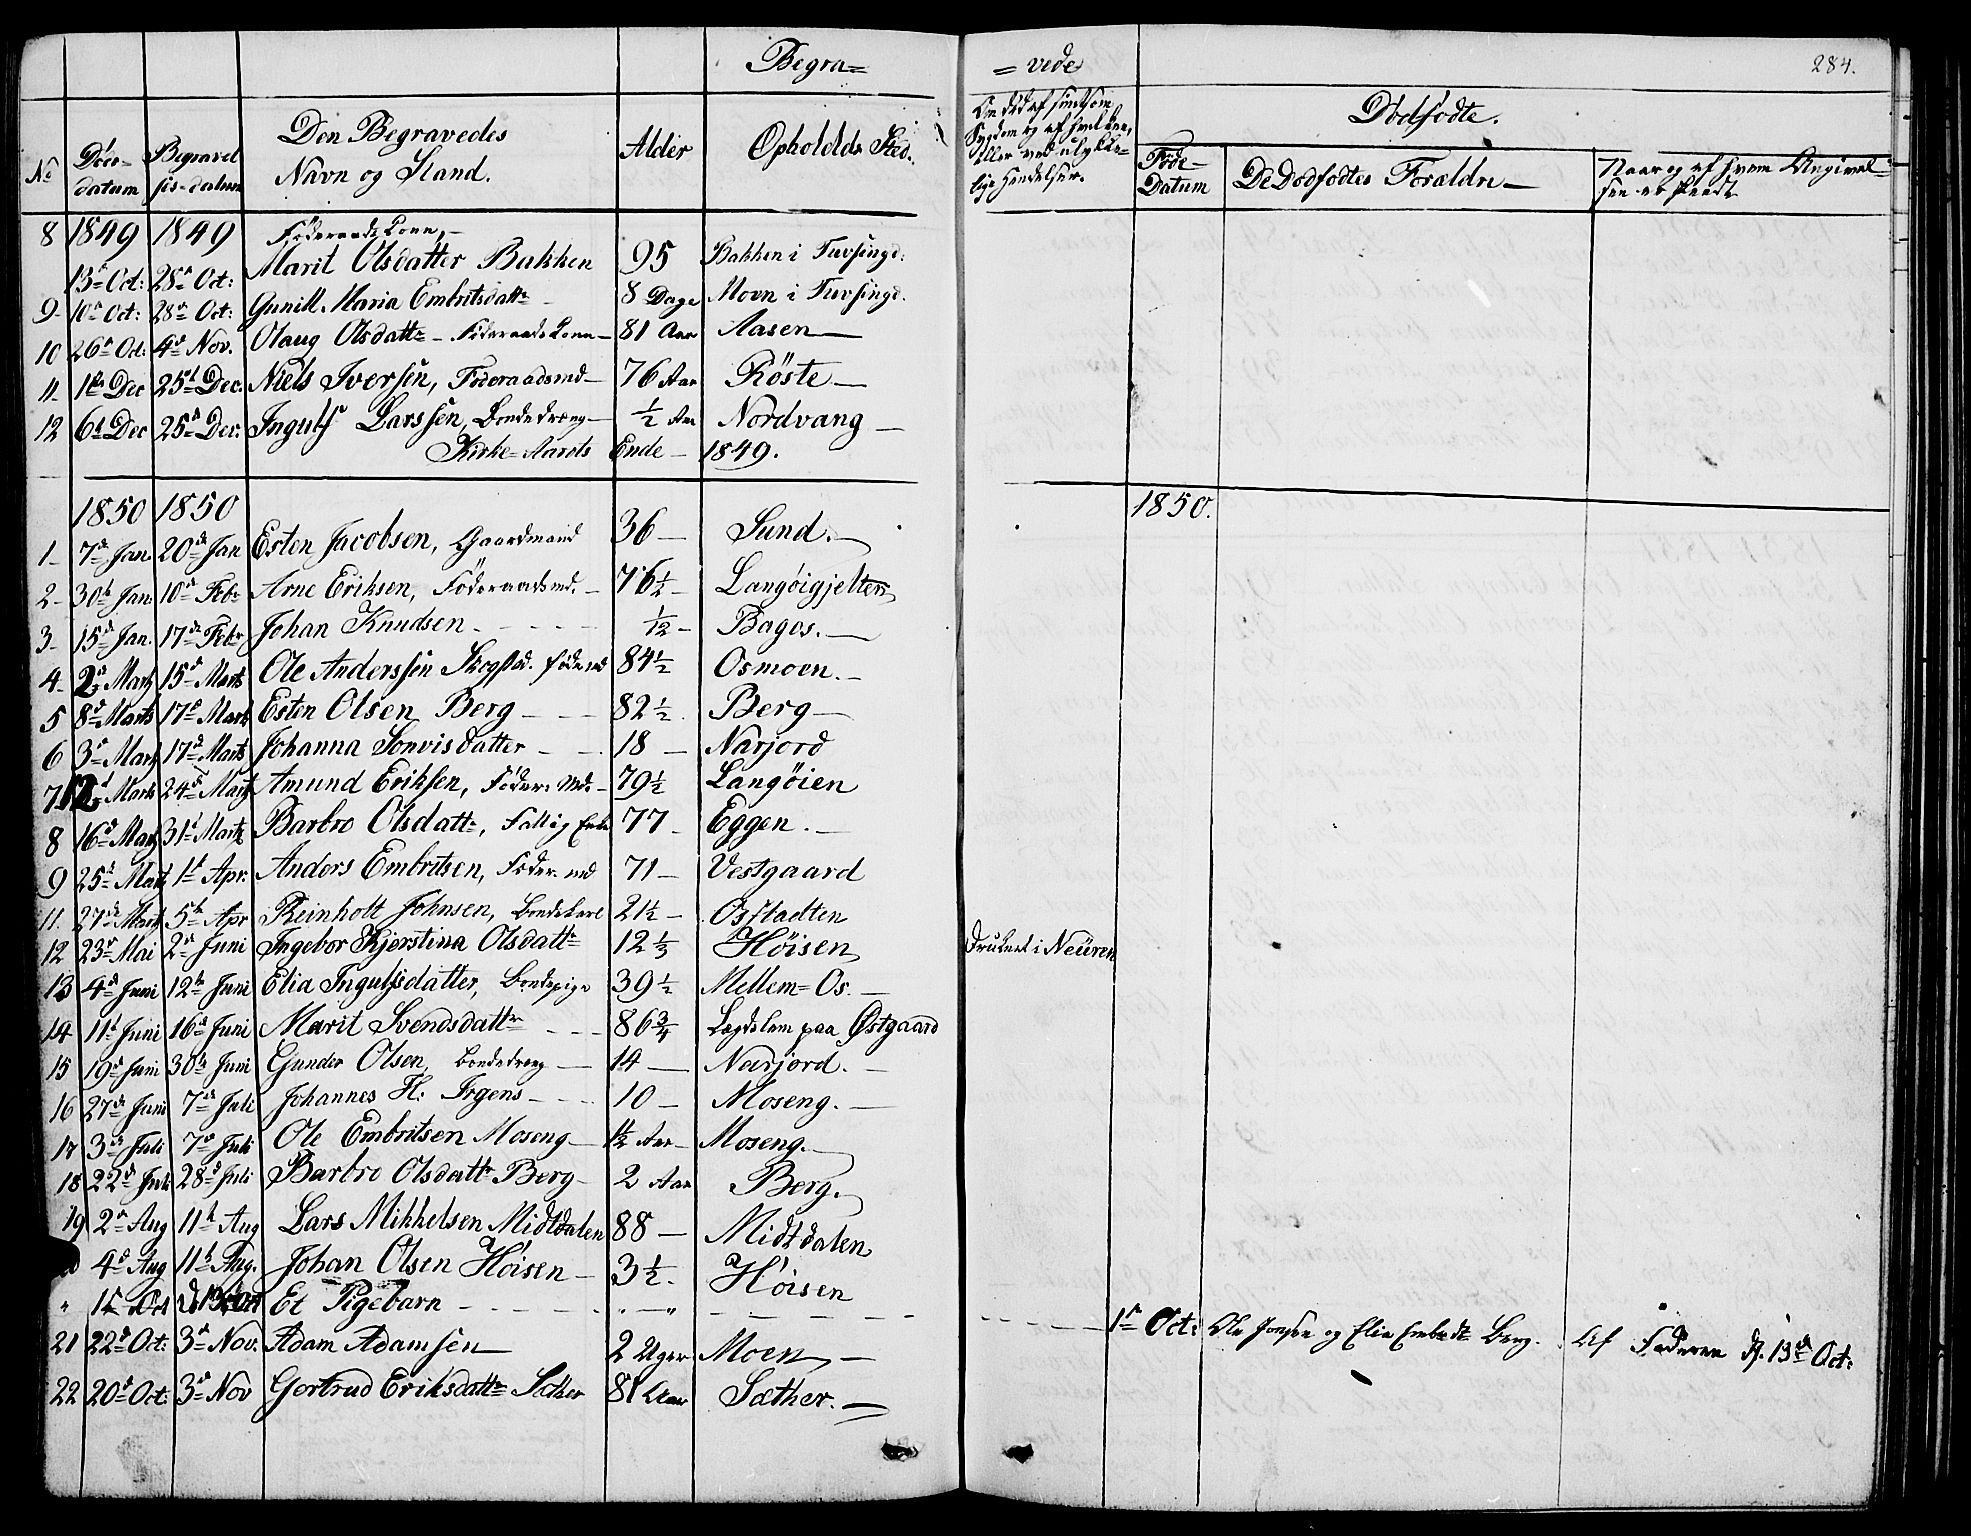 Begra=
= vede
284.
No
Døds-datum
Begravelsis-datum
Den Begravedes Navn og Stand.
Alder
Opholds Sted.
Om død af smitsom Sygdom og af hvilken, eller ved ulykkelige Hendelser.
Dødfødte.
Føde-Datum
De Dødfødtes Forældre
Naar og af hvem Angivelsen er skeedt
8 1849 1849 Føderaads Kone,
13de Oct: 28de Oct: Marit Olsdatter Bakken 95 Bakken i Tufsingd:
9 10de Oct: 28de Oct: Gunill Maria Embritsdattr 8 Dage Moen i Tufsingd.
10 26de Oct: 4de Nov. Olaug Olsdattr - Føderaads Kone - 81 Aar Aasen
11 1ste Dec 25de Dec. Niels Iversen, Føderaadsmd 76 Aar Röste
12 6te Dec 25de Dec. Ingulf Larssen, Bondedreng ½ Aar Nordvang
Kirke=Aarets Ende 1849.
1850 1850
1850.
1 7de Jan. 20de Jan Esten Jacobsen, Gaardmand 36 Sund.
2 30te Jan. 10de Febr Arne Eriksen, Føderaadsmd. 76½ Langöigjelten
3 15de Jan. 17de Febr Johan Knudsen 1/12 Bagos.
4 2de Marts 15de Marts Ole Anderssen Skogstad. föde md 84½ Osmoen.
5 8de Marts 17de Marts Esten Olsen Berg 82½ Berg
6 3de Marts 17de Marts Johanna Sonvisdatter 18 Narjord
7 12de Marts 24de Marts Amund Eriksen, Föder: md. 79½ Langöien
8 16de Marts 31te Marts Barbro Olsdattr, Fattig Enke 77 Eggen.
9 25de Marts 1ste Apr. Anders Embritsen, Föder. md 71 Vestgaard
11. 27de Marts 5te Apr Reinholt Johnsen, Bondekarl 21½ Osstadten
12 23de Mai 2den Juni Ingebor Kjerstina Olsdattr 12⅓ Höisen Druknet i Neüren
13 4de Juni 12te Juni Elia Ingulfsdatter, Bondepige 39½ Mellem=Os.
14 11te Juni 16de Juni Marit Svendsdattr 86¾ Lægdslem paa Østgaard
15 19de Juni 30te Juni Gunder Olsen, Bondedreng 14 Narjord.
16 27de Juni 7de Juli Johannes H: Irgens 10 Moseng.
17 3de Juli 7de Juli Ole Embritsen Moseng 1½ Aar Moseng.
18 22de Juli 28de Juli Barbro Olsdattr Berg 2 Aar Berg.
19 2de Aug 11te Aug Lars Mikkelsen Midtdalen 88 Midtdalen
4de Aug 11te Aug. Johan Olsen Höisen 3½ Höisen
" 1ste Oct Et Pigebarn " " 1ste Oct: Ole Jonsen og Elie Embrdtr Berg. Af Faderen d. 13de Oct:
21 22de Oct: 3de Nov. Adam Adamsen 2 Uger Moen
22 20de Oct: 3de Nov Gertrud Eriksdattr Sæther 81 Aar Sæther.